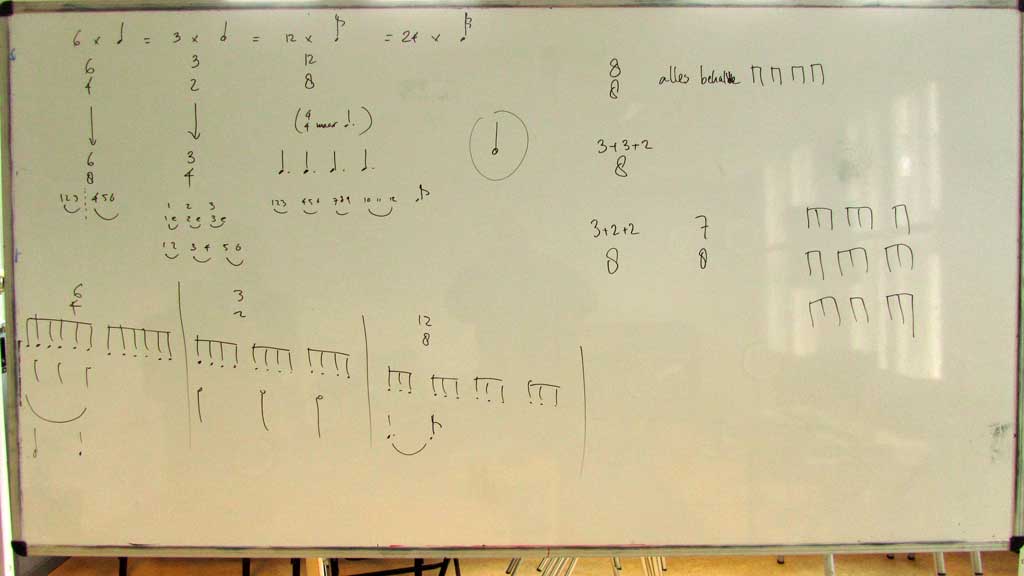 6 × ♩ = 3 × 𝅗𝅥 = 12 × ♪ = 24 × 𝅘𝅥𝅯
6 3 12
4 2 8
(4/4 maar ♩.)
6 3
8 4
♩. ♩. ♩. ♩.
123 456
1 2 3
1e 2e 3e
12 34 56
123 456 789 10 11 12
8
8
alles behalve
3+3+2
8
3+2+2 7
8 8
6
4
3
2
12
8